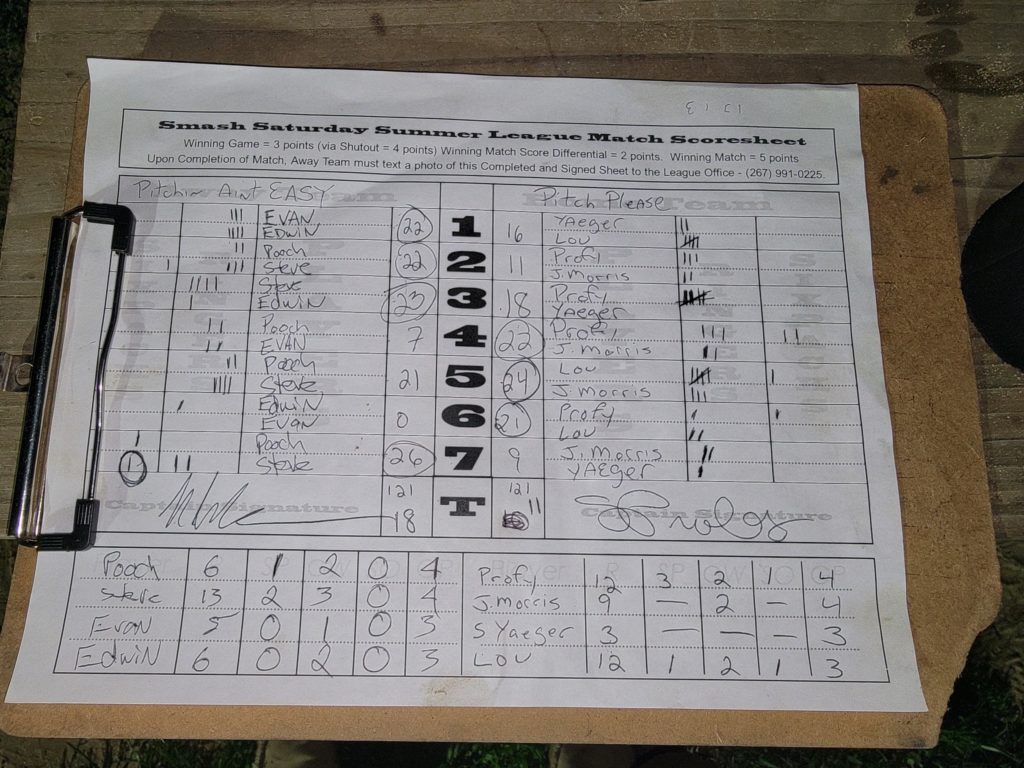 Smash Saturday Summer League Match Scoresheet
Winning Game = 3 points (via Shutout = 4 points) Winning Match Score Differential = 2 points. Winning Match = 5 points
Upon Completion of Match, Away Team must text a photo of this Completed and Signed Sheet to the League Office - (267) 991-0225.
Pitchin Aint EASY Pitch Please
EVAN 22 1 16 YAeger
EDWIN LOU
Pooch 22 2 11 Profy
Steve J. Morris
Steve 23 3 18 Profy
EDWIN YAeger
Pooch 7 4 22 Profy
EVAN J. Morris
Pooch 21 5 24 LOU
Steve J. Morris
Edwin 0 6 21 Profy
Evan LOU
Pooch 26 7 9 J. Morris
Steve YAeger
121 T 121
18 11
Captain Signature Captain Signature
Pooch 6 1 2 0 4 Profy 12 3 2 1 4
Steve 13 2 3 0 4 J. morris 9 — 2 — 4
Evan 5 0 1 0 3 S Yaeger 3 — — — 3
Edwin 6 0 2 0 3 LOU 12 1 2 1 3